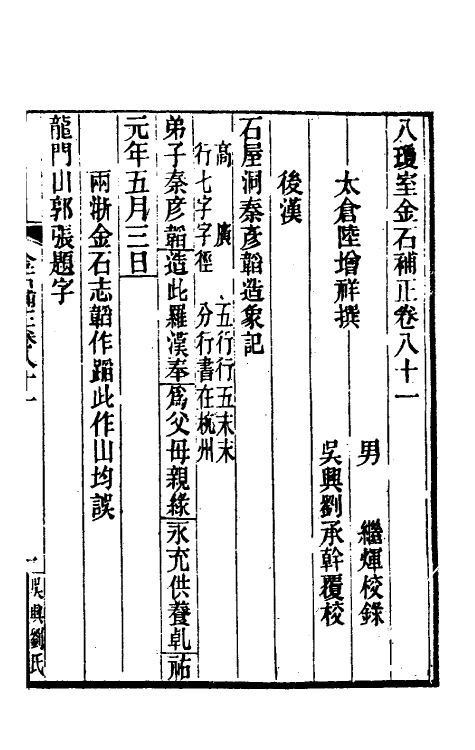 八瓊室金石補正卷八十一
太倉陸增祥撰
男　繼煇校錄
吳興劉承幹覆校
後漢
石屋洞秦彥韜造象記
高　廣　五行行五末末
行七字字徑　分行書在杭州
弟子秦彥韜造此羅漢奉爲父母親緣永充供養乹祐
元年五月三日
兩浙金石志韜作蹈此作山均誤
龍門山郭張題字
金石補正卷八十一
一
吳興劉氏